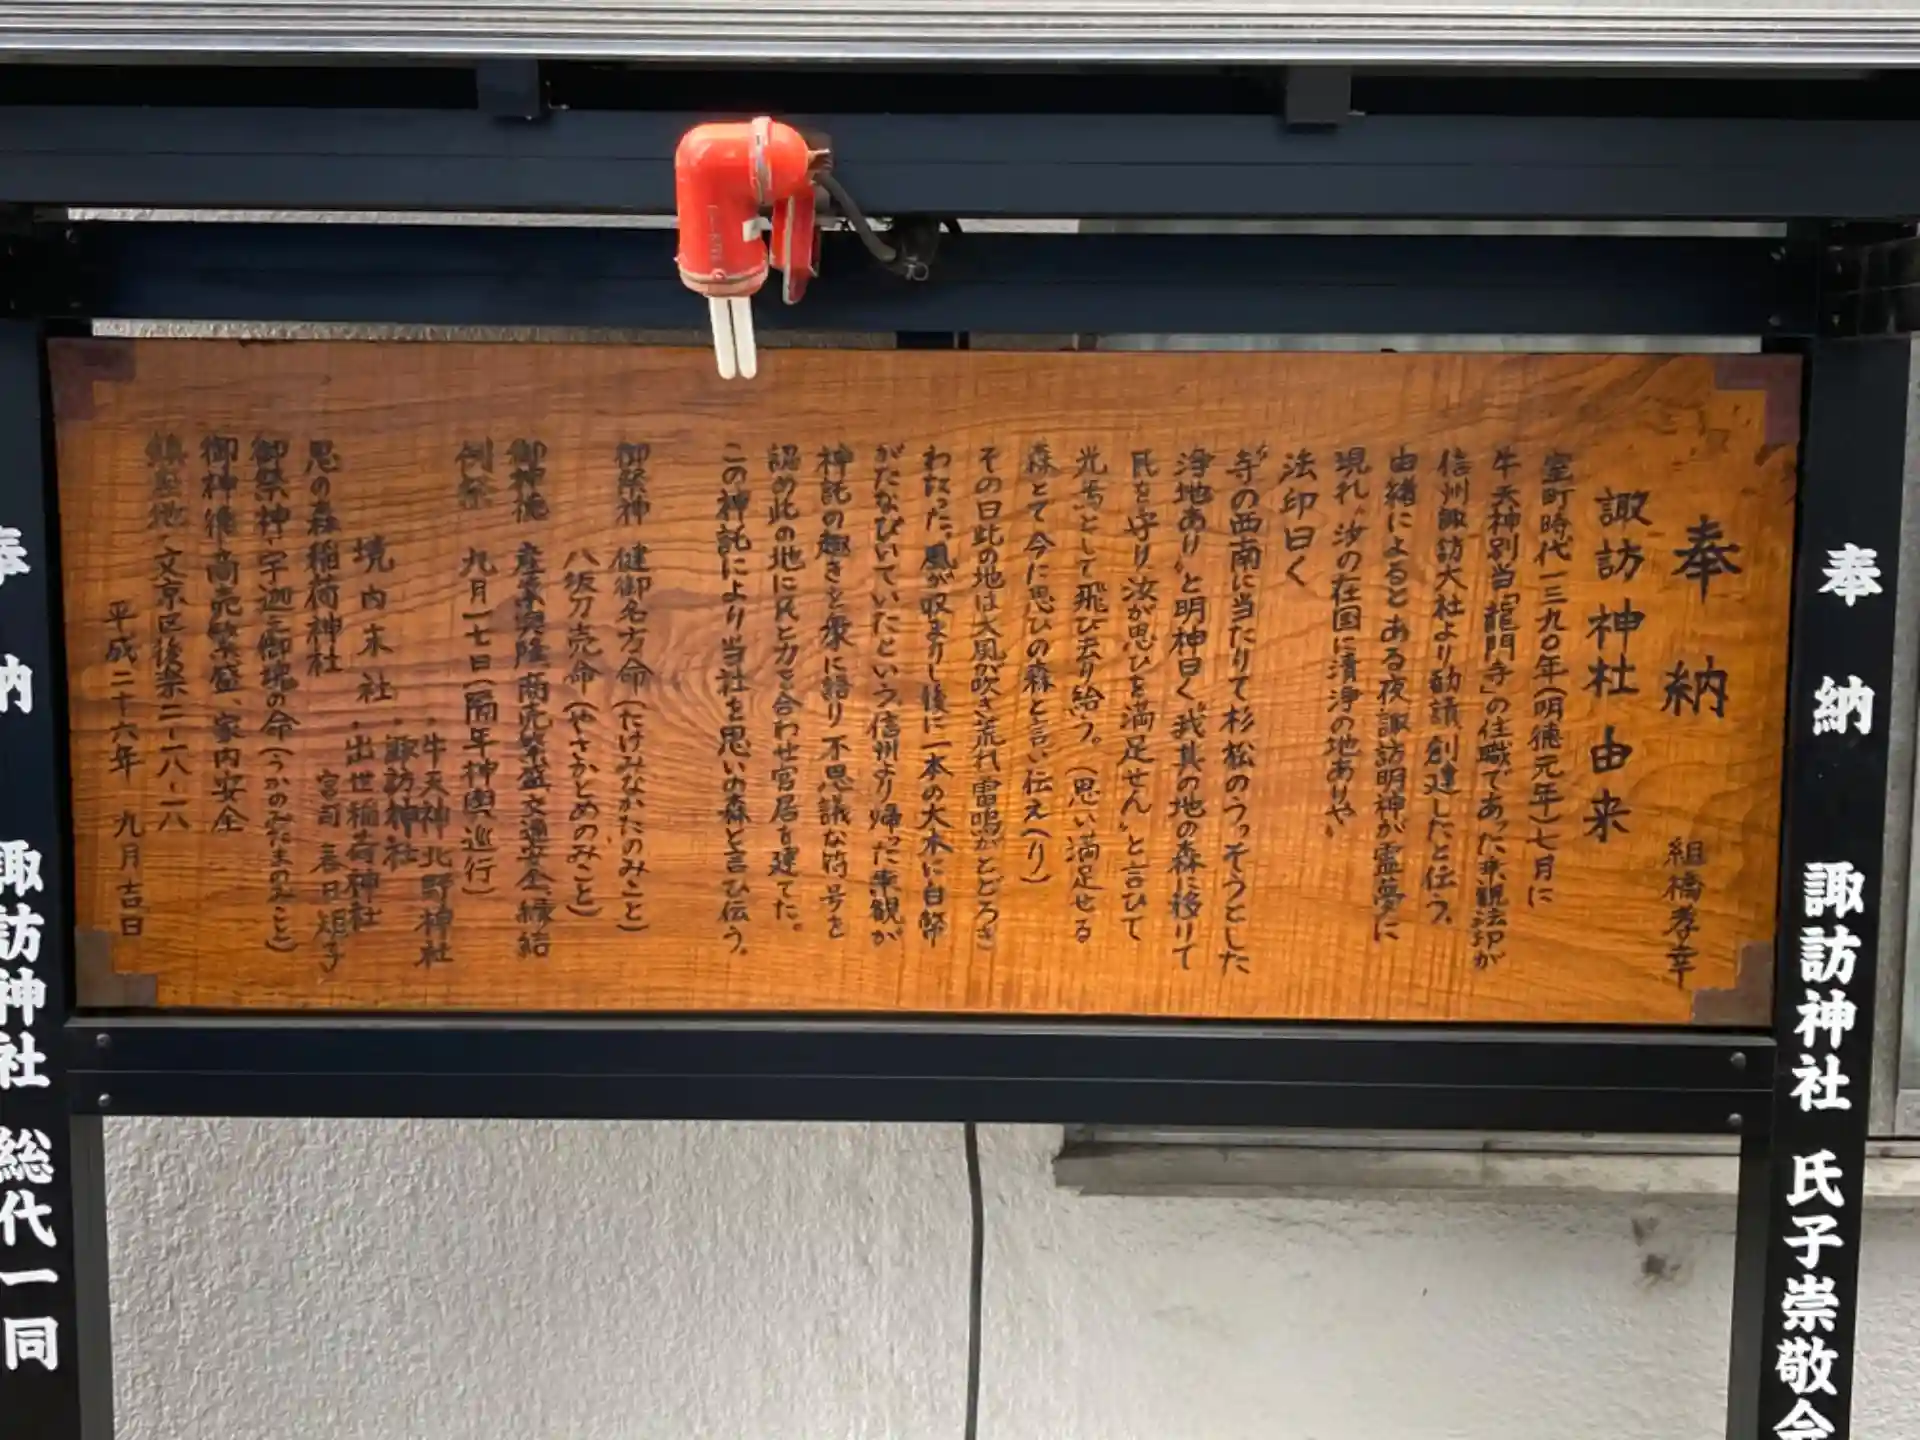 奉納 諏訪神社 氏子崇敬会
奉納 組橋孝幸
諏訪神社由来
室町時代一三九〇年(明徳元年)七月に
牛天神別当「龍門寺」の住職であった乗観法印が
信州諏訪大社より勧請、創建したと伝う。
由緒によるとある夜諏訪明神が霊夢に
現れ〝汝の在国に清浄の地ありや〟
法印曰く
〝寺の西南に当たりて杉松のうっそうとした
浄地あり〟と明神曰く〝我其の地の森に移りて
氏を守り汝が思ひを満足せん〟と言ひて
光馬として飛び去り給う。(思い満足せる
森とて今に思ひの森と言い伝え(り)
その日此の地は大風が吹き荒れ雷鳴がとどろき
わたった。風が収まりし後に一本の大木に白幣
がたなびいていたという。信州より帰った乗観が
神託の趣きを衆に語り不思議な符号を
認め此の地に氏と力を合わせ宮居を建てた。
この神託により当社を思いの森と言ひ伝う。
御祭神 健御名方命(たけみなかたのみこと)
八坂刀売命(やさかとめのみこと)
御神徳 産業興隆、商売繁盛、交通安全、縁結
例祭 九月二七日(隔年神輿巡行)
境内末社
・牛天神北野神社
・諏訪神社
・出世稲荷神社
宮司 春日矩子
思の森稲荷神社
御祭神・宇迦之御魂の命(うかのみたまのみこと)
御神徳・商売繁盛、家内安全
鎮座地・文京区後楽二-一八-一八
平成二十六年 九月吉日
奉納 諏訪神社 総代一同